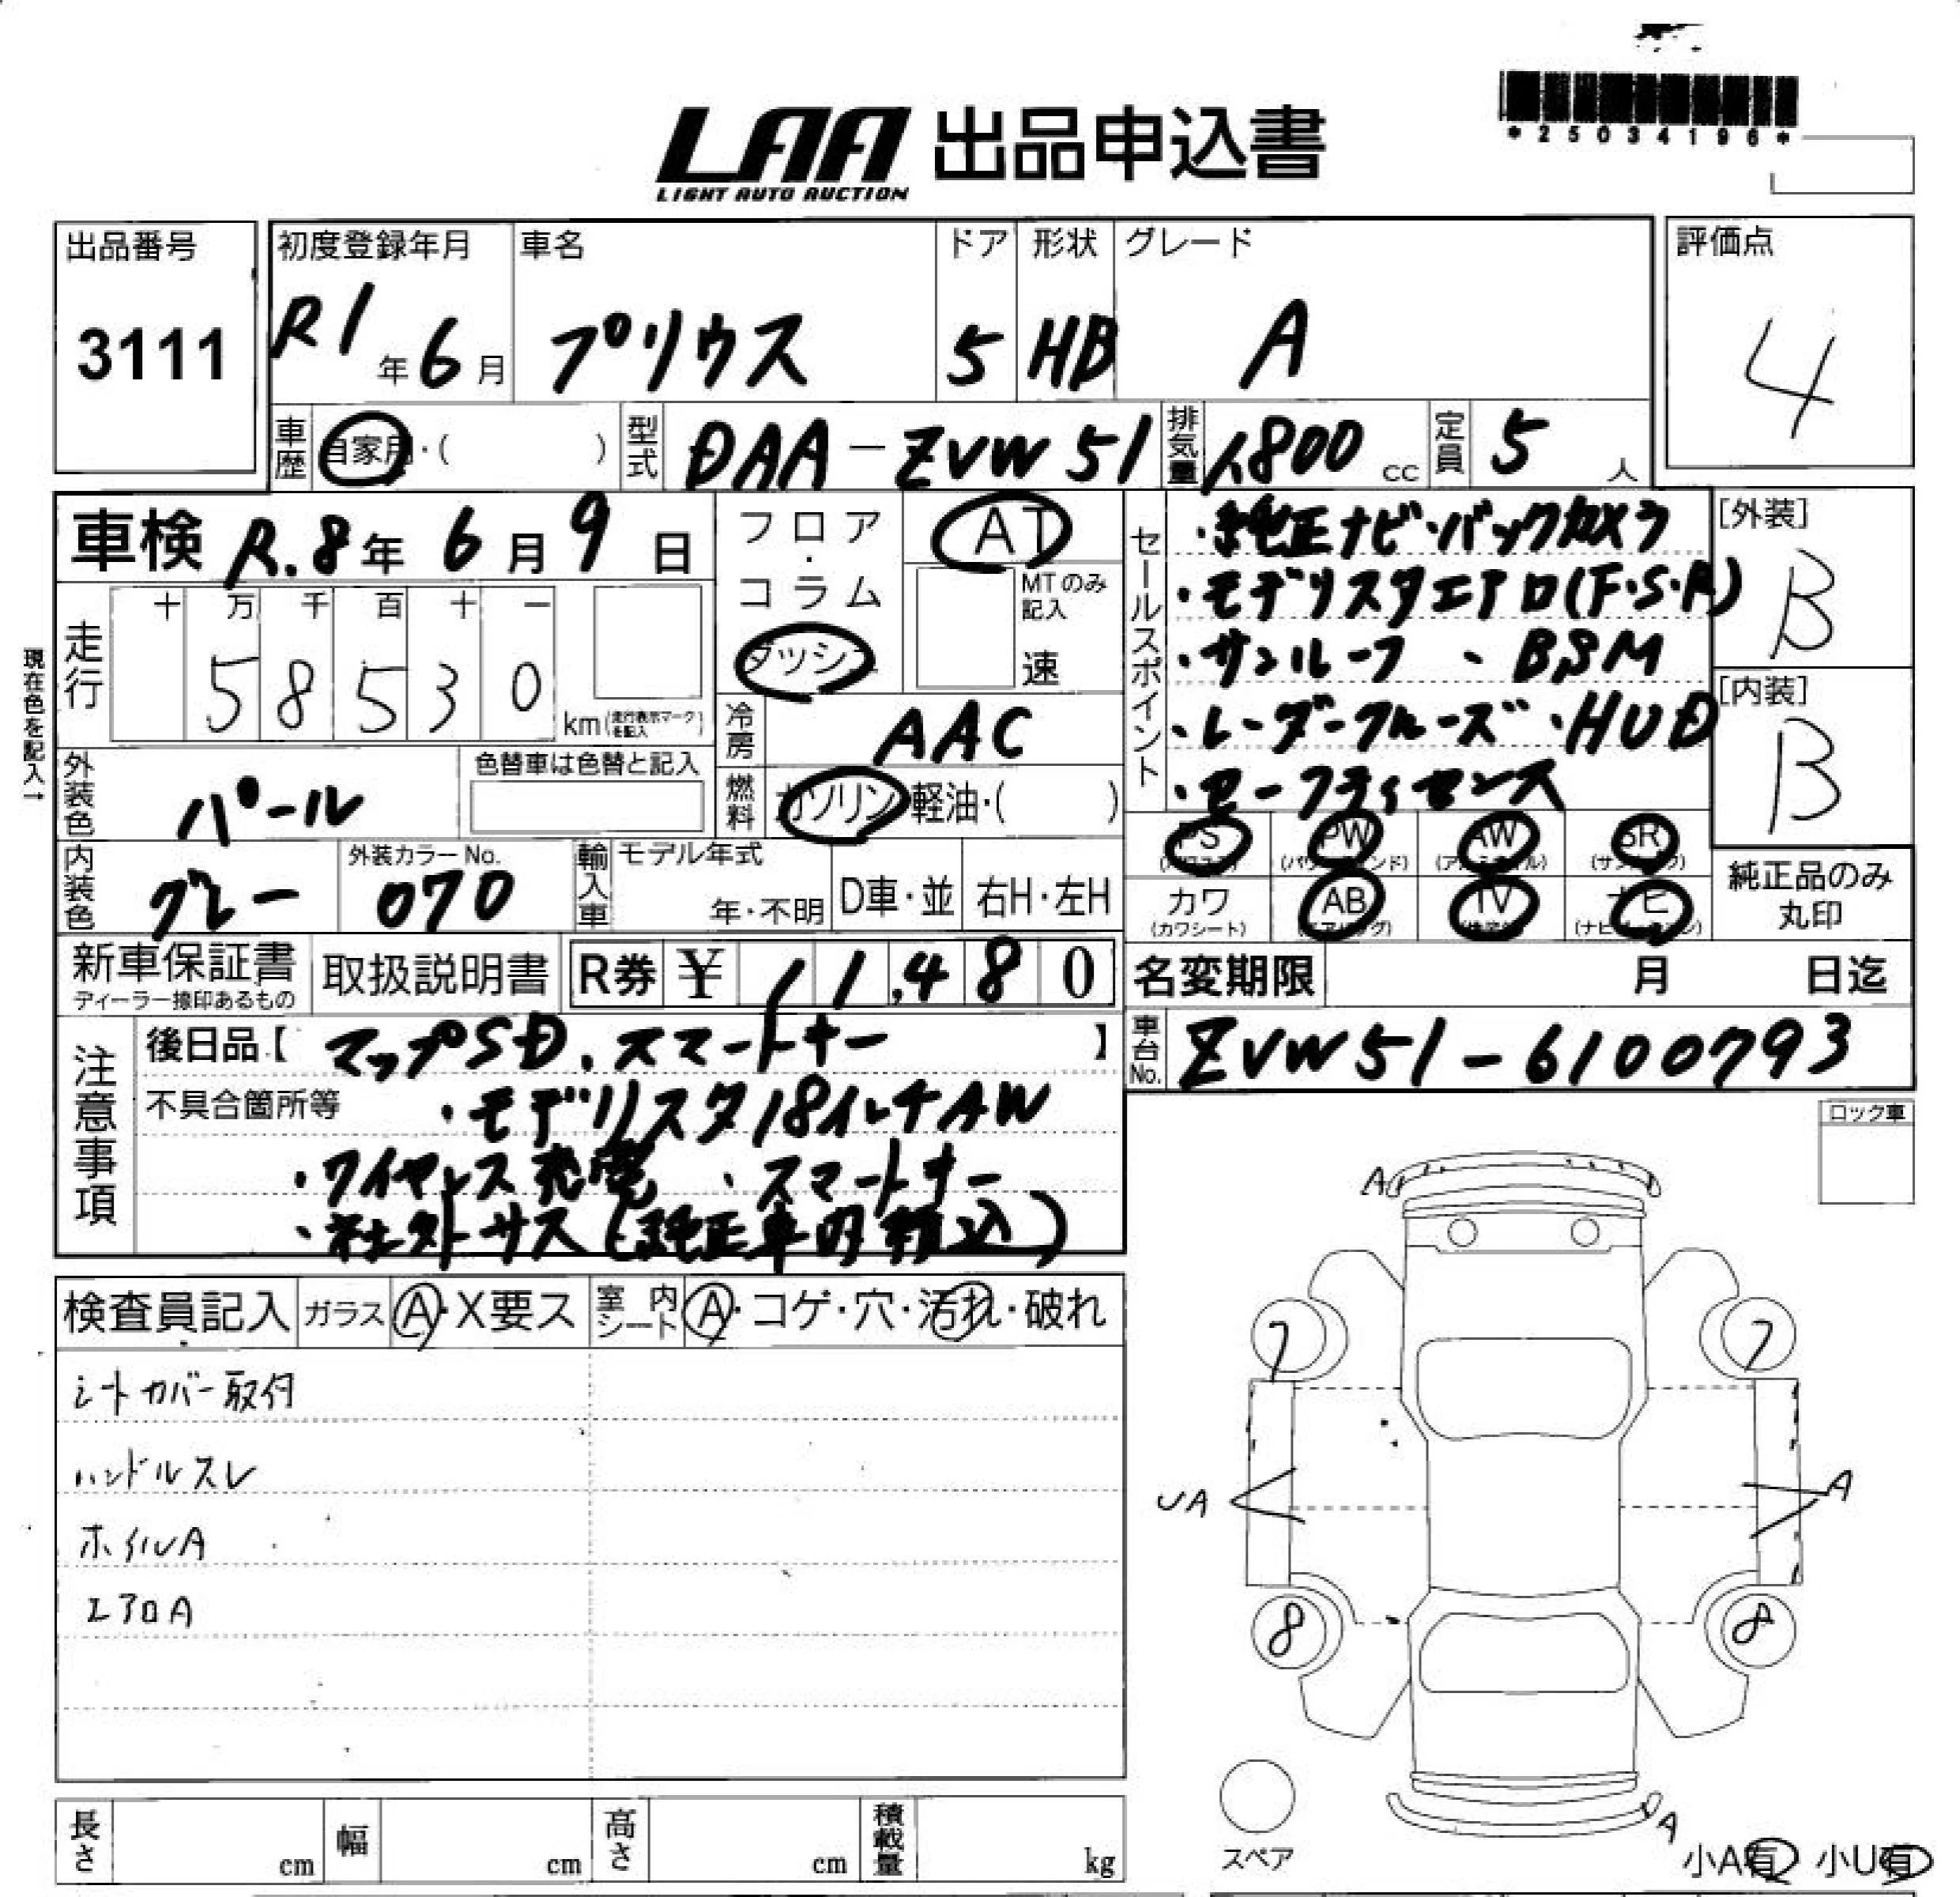 *25034196*
LAA 出品申込書
LIGHT AUTO AUCTION
出品番号
3111
初度登録年月
R1年6月
車名
プリウス
ドア
5
形状
HB
グレード
A
評価点
4
車歴 自家用・( )
型式 DAA-ZVW51
排気量 1800 cc
定員 5 人
車検 R.8年 6月 9日
フロア・コラム ダッシュ
AT
MTのみ記入
速
セールスポイント
・純正ナビ・バックカメラ
・モデリスタエアロ(F・S・R)
・サンルーフ ・BSM
・レーダークルーズ ・HUD
・セーフティセンス
[外装]
B
[内装]
B
現在色を記入↑
走行
十 万 千 百 十 一
5 8 5 3 0
km(走行表示マークを記入)
冷房 AAC
外装色 パール
色替車は色替と記入
燃料 ガソリン・軽油・( )
PS (パワステ) PW (パワーウインド) AW (アルミホイル) SR (サンルーフ)
カワ (カワシート) AB (エアバッグ) TV ナビ (ナビゲーション)
純正品のみ
丸印
内装色 グレー
外装カラーNo.
070
輸入車 モデル年式
年・不明 D車・並 右H・左H
新車保証書
ディーラー捺印あるもの
取扱説明書
R券 ¥ 11,480
名変期限 月 日迄
車台No. ZVW51-6100793
注意事項
後日品【マップSD、スマートキー】
不具合箇所等 ・モデリスタ18インチAW
・ワイヤレス充電 ・スマートキー
・社外サス(純正車内積込)
ロック車
検査員記入 ガラス A・X要ス 室内シート A・コゲ・穴・汚れ・破れ
シートカバー取付
ハンドルスレ
ホイルA
エアロA
A
7 7
UA A
8 8
スペア
UA
小A有 小U有
長さ cm 幅 cm 高さ cm 積載量 kg